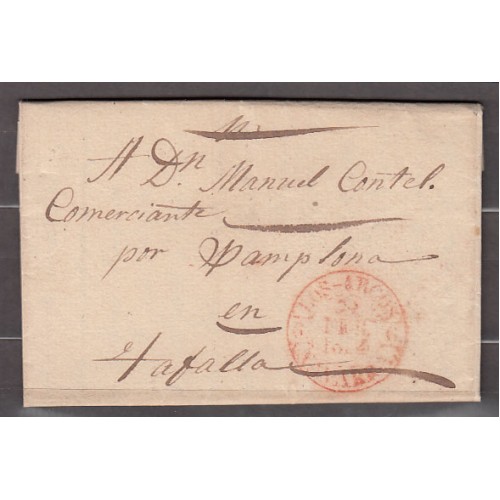 A Dn Manuel Contel.
Comerciante
por Pamplona
en
Tafalla
LOS-ARCOS